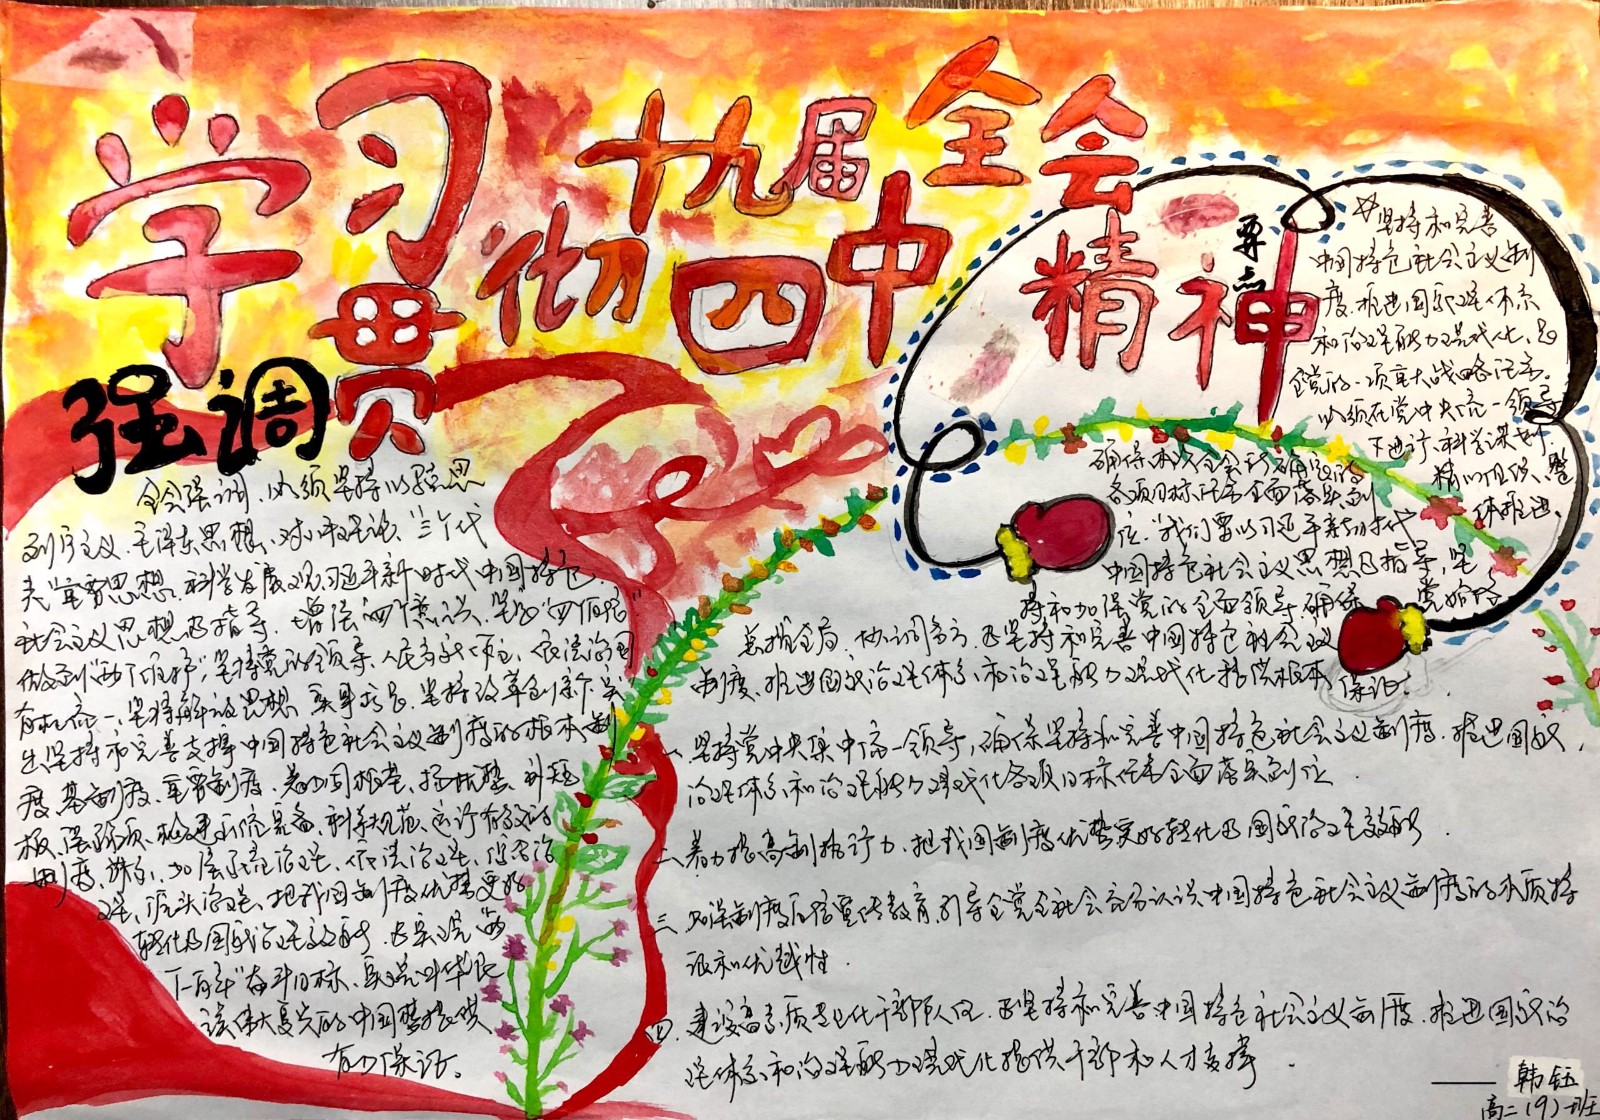 学习
贯彻
十九届
四中
全会
精神
强调
全会强调、必须坚持以马克思
列宁主义、毛泽东思想、邓小平理论、“三个代
表”重要思想、科学发展观、习近平新时代中国特色
社会主义思想为指导，增强“四个意识”、坚定“四个自信”
做到“两个维护”，坚持党的领导、人民当家作主、依法治国
有机统一、坚持解放思想、实事求是、坚持改革创新、突
出坚持和完善支撑中国特色社会主义制度的根本制
度、基本制度、重要制度，着力固根基、扬优势、补短
板、强弱项、构建系统完备、科学规范、运行有效的
制度体系，加强系统治理、依法治理、综合治
理、源头治理、把我国制度优势更好
转化为国家治理效能，为实现“两
个一百年”奋斗目标、实现中华民
族伟大复兴的中国梦提供
有力保证。
要点
☆坚持和完善
中国特色社会主义制
度、推进国家治理体系
和治理能力现代化，是
全党的一项重大战略任务。
必须在党中央统一领导
下进行，科学谋划、
精心组织、整
体推进、
确保本次全会所确定的
各项目标任务全面落实到
位。我们要以习近平新时代
中国特色社会主义思想为指导，坚
持和加强党的全面领导，确保 党始终
总揽全局、协调各方，为坚持和完善中国特色社会主义
制度、推进国家治理体系和治理能力现代化提供根本 保证。
一、坚持党中央集中统一领导，确保坚持和完善中国特色社会主义制度、推进国家
治理体系和治理能力现代化各项目标任务全面落实到位
二、着力提高制度执行力、把我国制度优势更好转化为国家治理效能
三、加强制度自信宣传教育，引导全党全社会充分认识中国特色社会主义制度的本质特
征和优越性
四、建设高素质专业化干部队伍，为坚持和完善中国特色社会主义制度、推进国家治
理体系和治理能力现代化提供干部和人才支撑
——韩钰
高二（9）班